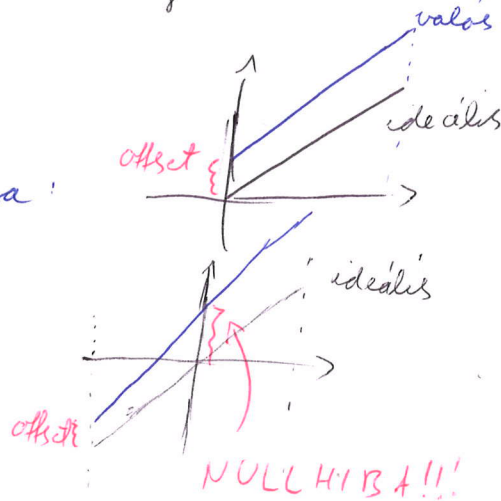 valós
ideális
offset
a :
ideális
offset
NULLHIBA!!!